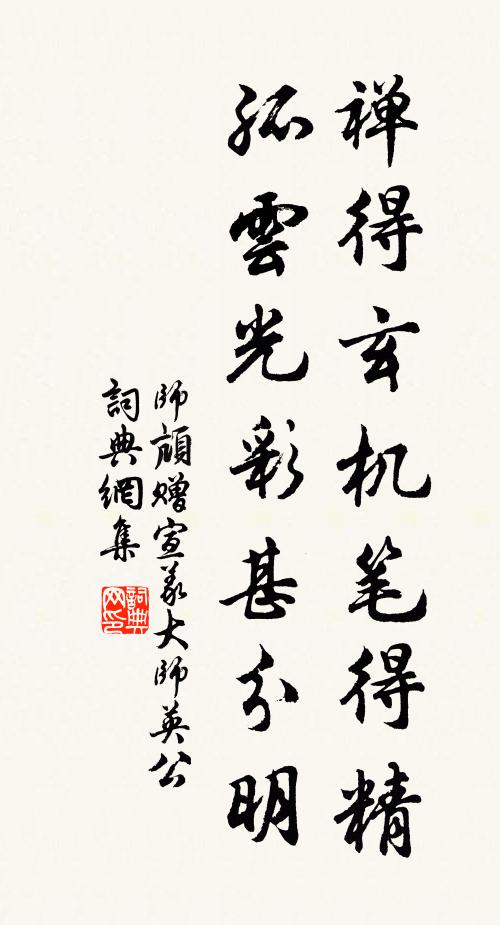 禅得玄机笔得精
孤雲光彩甚分明
師頏赠宣義大師英公
詞典網集
詞典网印